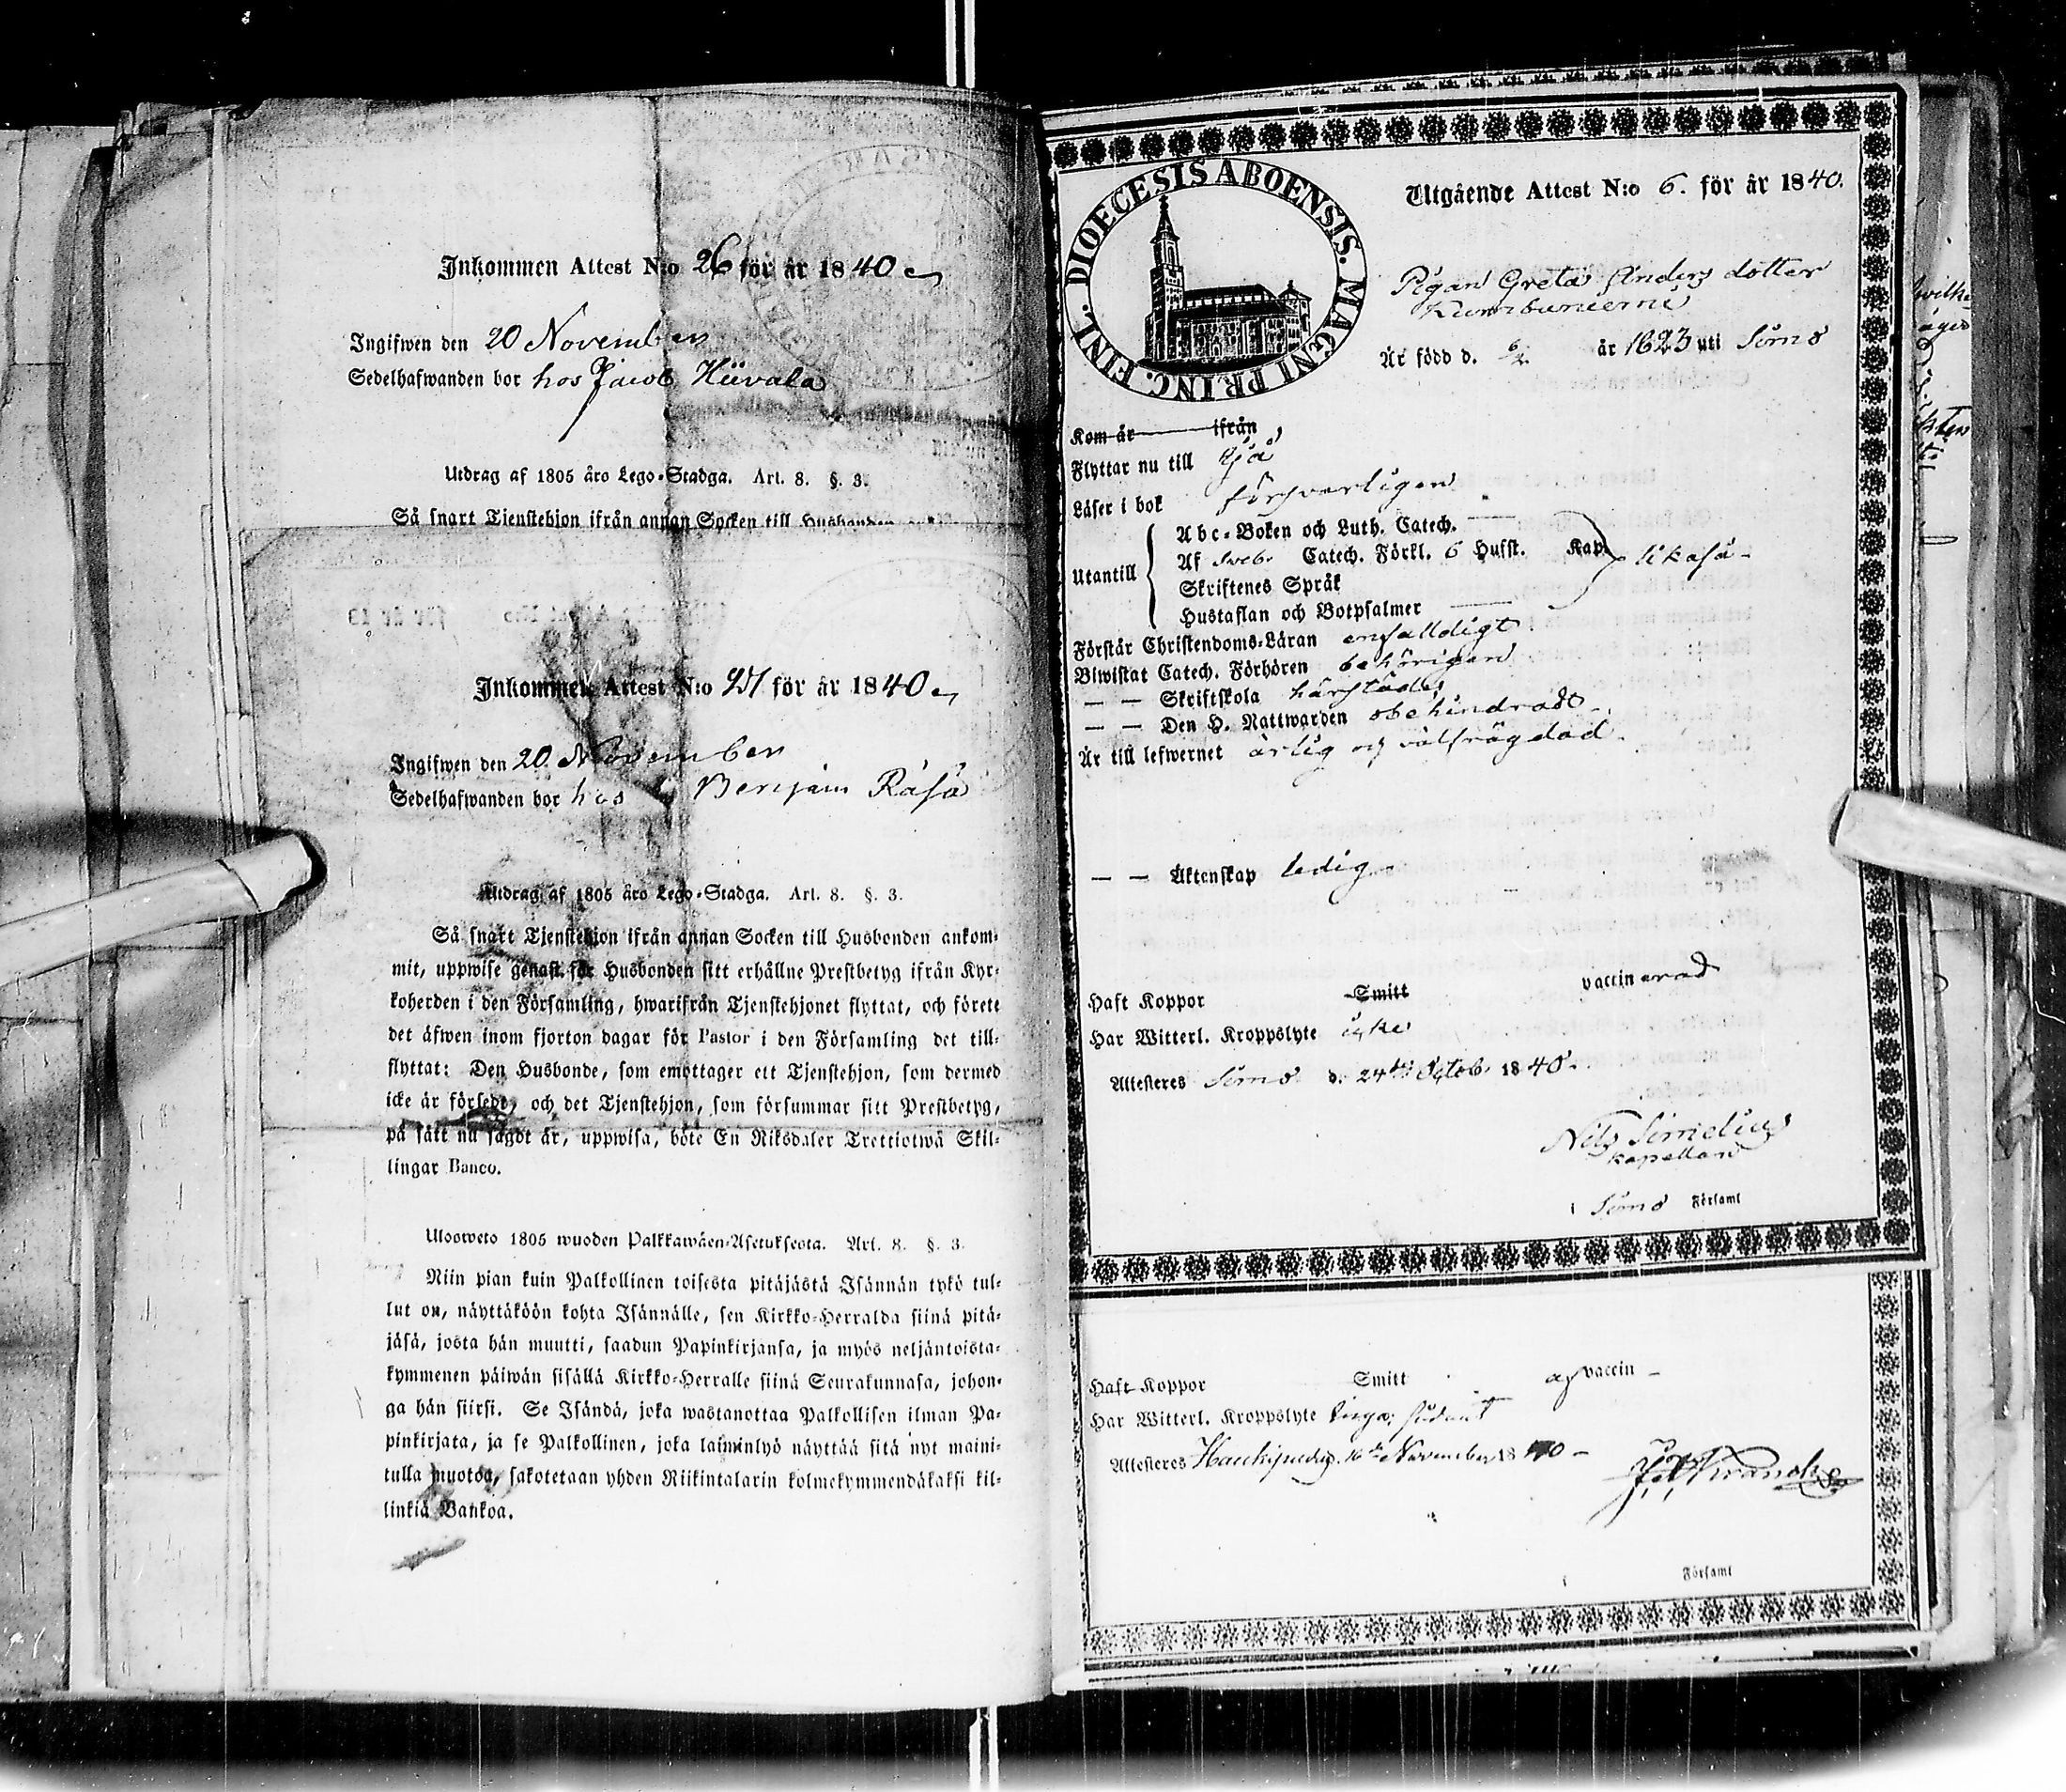 Inkommen Attest N:o 26 för år 1840
Ingifwen den 20 November
Sedelhafwanden bor hos Jacob Hiivala
Utdrag af 1805 års Lego-Stadga. Art. 8. §. 3.
Så snart Tjenstehjon ifrån annan Socken till Husbonden
Inkommen Attest N:o för år 1840
Ingifwen den 20 November
Sedelhafwanden bor hos Benjam Räsä
Utdrag af 1805 års Lego-Stadga. Art. 8. §. 3.
Så snart Tjenstehjon ifrån annan Socken till Husbonden ankom-
mit, uppwise genast för Husbonden sitt erhållne Prestbetyg ifrån Kyr-
koherden i den Församling, hwarifrån Tjenstehjonet flyttat, och förete
det äfwen inom fjorton dagar för Pastor i den Församling det till-
flyttat: Den Husbonde, som emottager ett Tjenstehjon, som dermed
icke är försedt, och det Tjenstehjon, som försummar sitt Prestbetyg,
på sätt nu sagdt är, uppwisa, böte En Riksdaler Trettiotwå Skil-
lingar Banco.
Uloswoto 1805 wuoden Palkkawäen-Asetuksesta. Art. 8. §. 3.
Niin pian kuin Palkollinen toisesta pitäjästä Isännän tykö tul-
lut on, näyttäköön kohta Isännälle, sen Kirkko-Herralda siinä pitä-
jäsä, josta hän muutti, saadun Papinkirjansa, ja myös neljäntoista-
kymmenen päiwän sisällä Kirkko-Herralle siinä Seurakunnasa, johon-
ga hän siirsi. Se Isändä, joka wastanottaa Palkollisen ilman Pa-
pinkirjata, ja se Palkollinen, joka laiminlyö näyttää sitä nyt maini-
tulla muotoa, sakotetaan yhden Riikintalarin kolmekymmendäkaksi kil-
linkiä Bankoa.
DIOECESIS ABOENSIS. MAGNI PRINC. FINL.
Utgående Attest N:o 6. för år 1840.
Pigan Greta Anders dotter
Är född d. 6/2 år 1823 uti Somo
Kom år ifrån
Flyttar nu till
Läser i bok försvarligen
Utantill
Abc-Boken och Luth. Catech.
Af Sveb. Catech. Förkl. 6 Hufst. Kap. likaså
Skriftenes Språk
Hustaflan och Botpsalmer
Förstår Christendoms-Läran enfalldigt
Biwistat Catech. Förhören behörigen
— — Skriftskola härstädes
— — Den H. Nattwarden obehindradt
Är till lefwernet ärlig och välfrägdad
— — Äktenskap ledig
Haft Koppor Smitt vaccinerad
Har Witterl. Kroppslyte icke
Attesteres Somo d. 24de Octob. 1840.
Nils Simelius
Kapellan
i Somo Församl
Haft Koppor Smitt af vaccin
Har Witterl. Kroppslyte inga
Attesteres d. 16 November 1840
i Församl